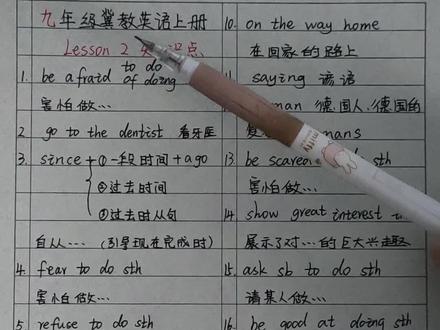 九年级冀教英语上册
Lesson 2 识点
1. be afraid to do
of doing
害怕做…
2 go to the dentist 看牙医
3. since + ①一段时间 + ago
②过去时间
③过去时从句
自从… (引导现在完成时)
4. fear to do sth
害怕做…
5 refuse to do sth
10. on the way home
在回家的路上
11 saying 谚语
man 德国人、德国的
复 mans
13. be scared do sth
害怕做…
14 show great interest
展示了对…的巨大兴趣
15. ask sb to do sth
请某人做…
16. be good at doing sth